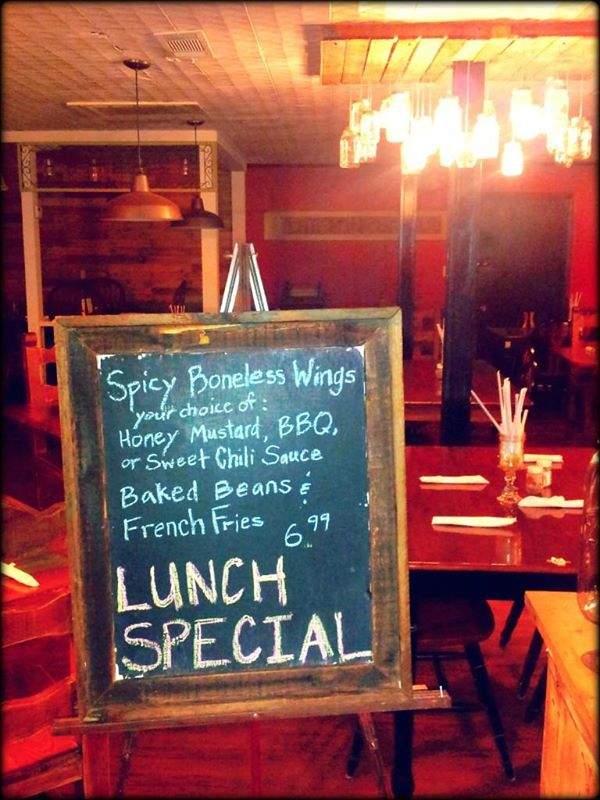 Spicy Boneless Wings
your choice of:
Honey Mustard, BBQ,
or Sweet Chili Sauce
Baked Beans &
French Fries
6.99
LUNCH
SPECIAL